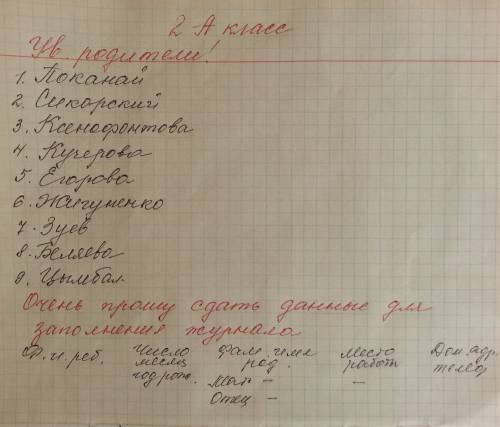 2-А класс
Ув. родители!
1. Поканай
2. Сикорский
3. Ксенофонтова
4. Кучерова
5. Егорова
6. Жигуненко
7. Зуев
8. Беляева
9. Цымбал
Очень прошу сдать данные для
заполнения журнала
Ф.и. реб. Число Фам. имя Место Дом. адр.
месяц род. работы телеф
год рож. Мать - -
Отец -